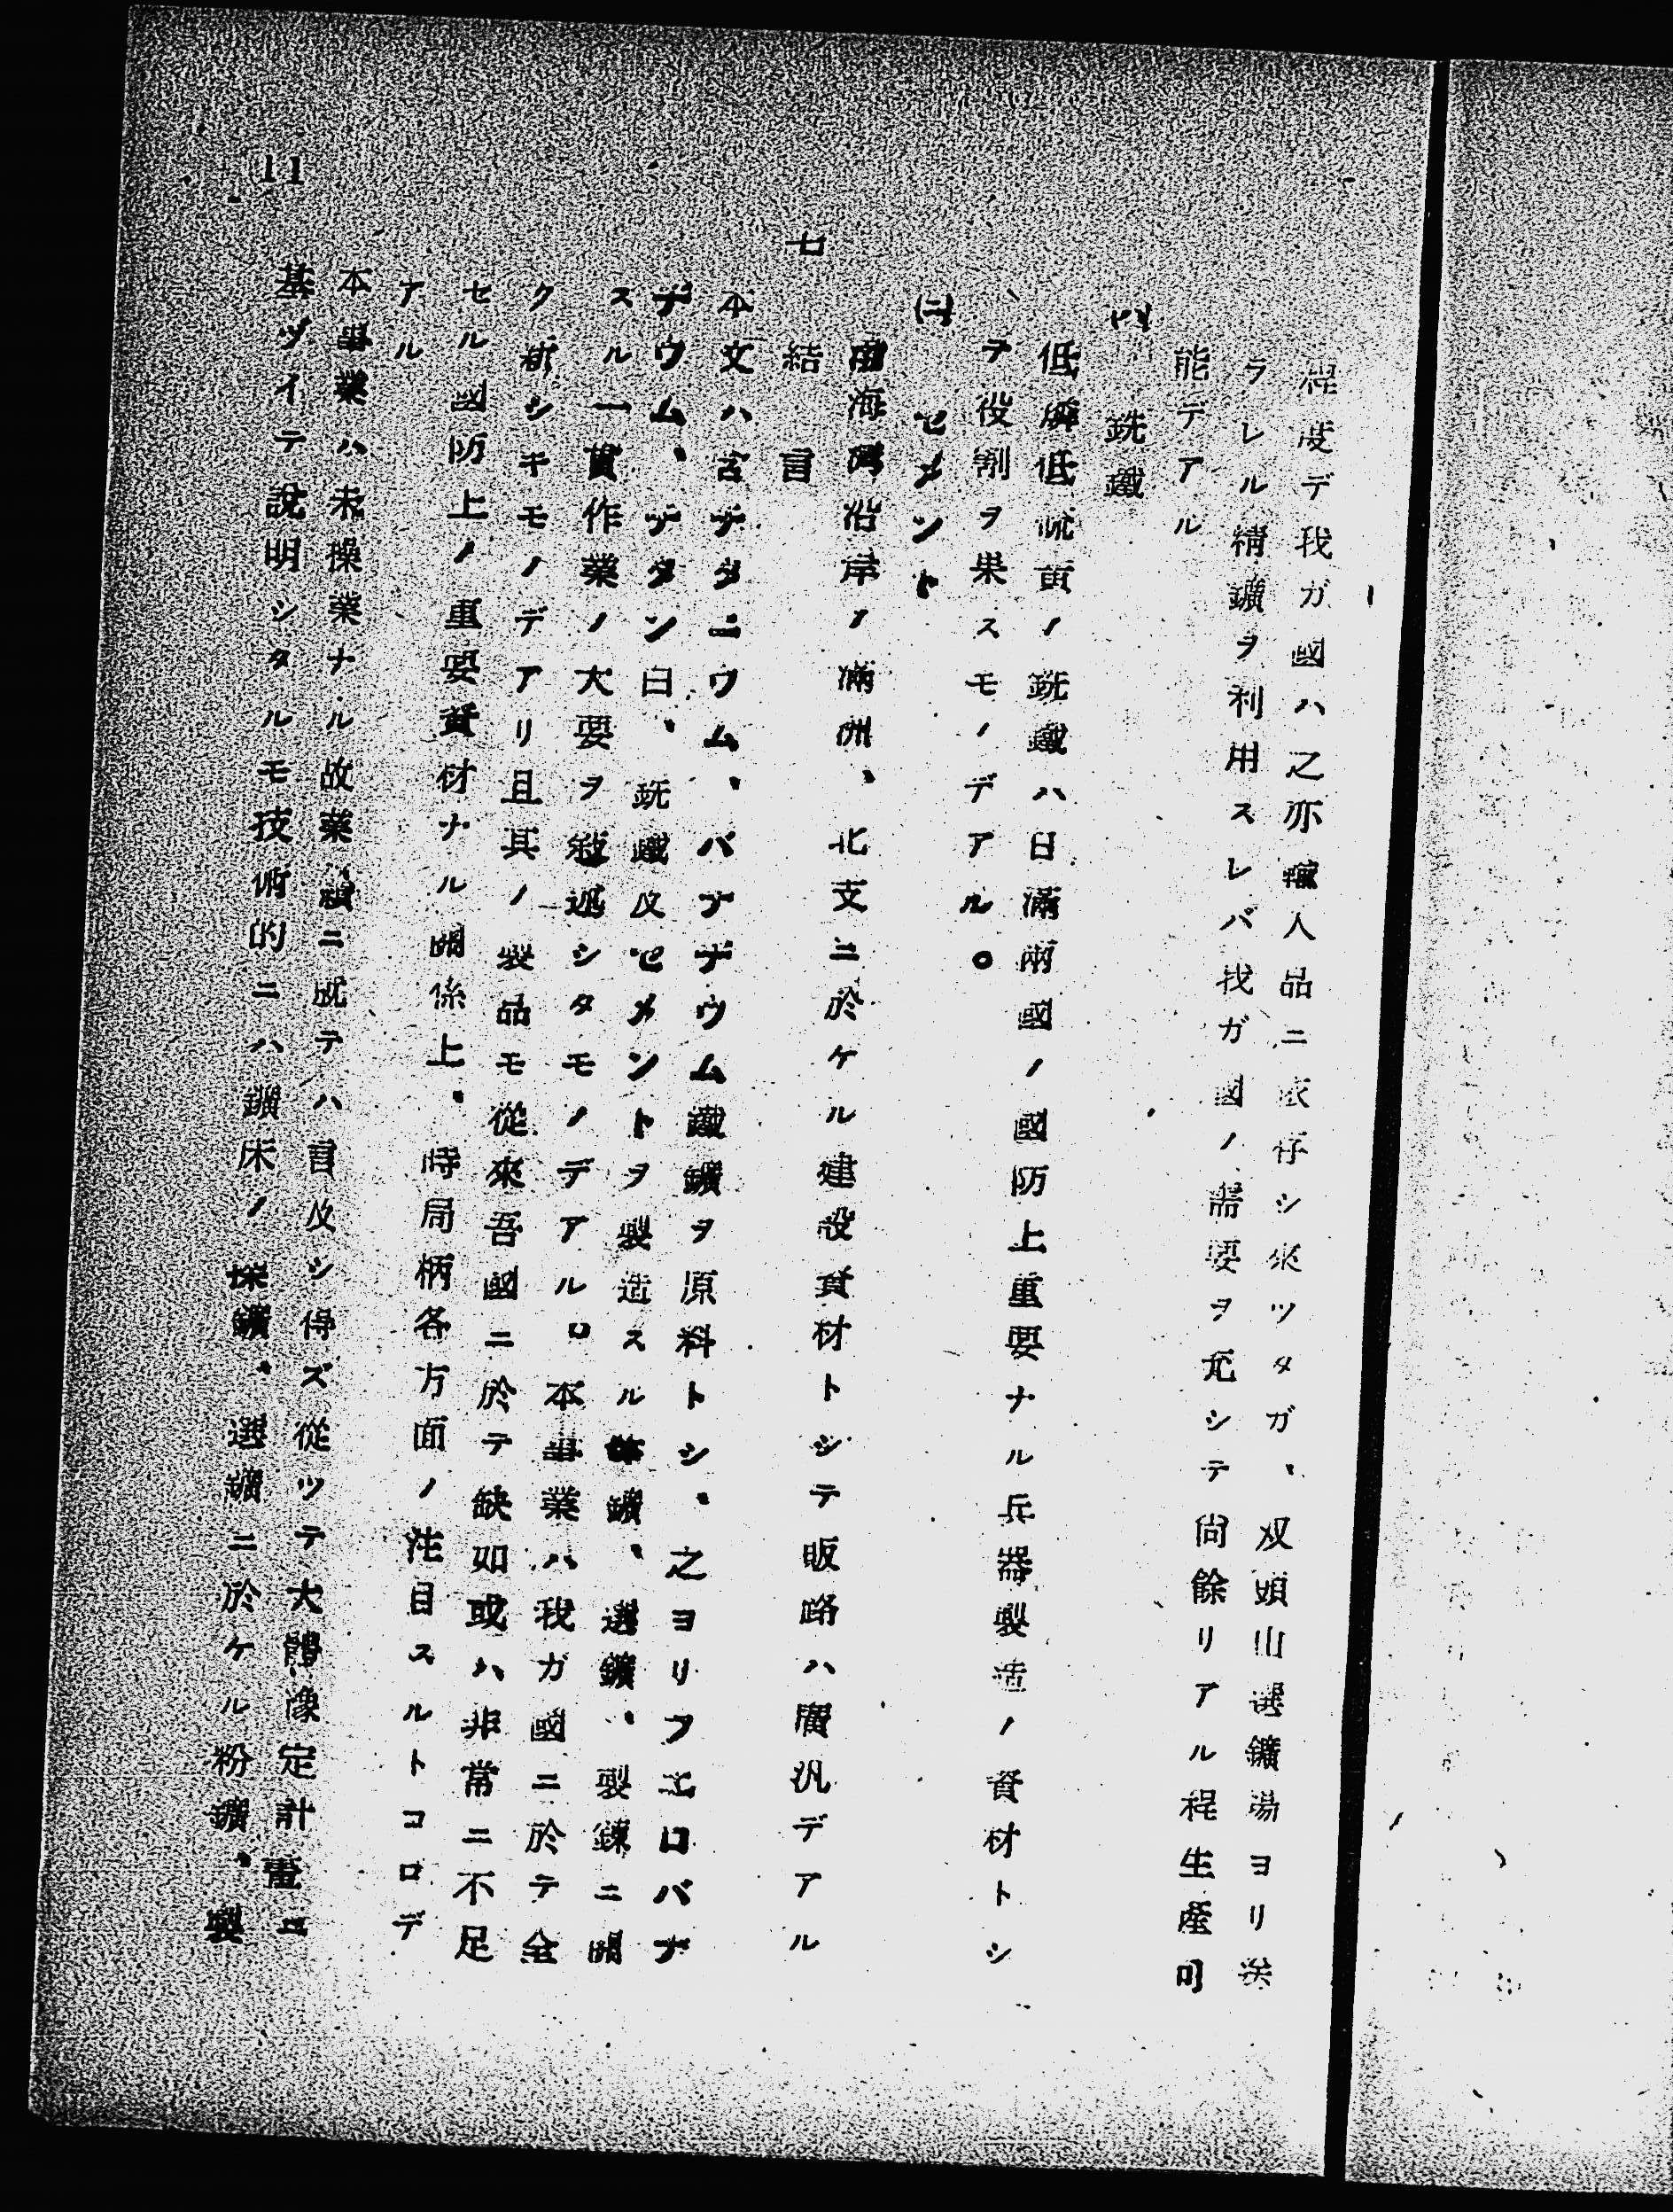 程度デ我ガ國ハ之亦輸入品ニ依存シ來ツタガ、双頭山選鑛場ヨリ送
ラレル精鑛ヲ利用スレバ我ガ國ノ需要ヲ充シテ尚餘リアル程生産可
能デアル
(ハ) 銑鐵
低燐低硫黄ノ銑鐵ハ日滿兩國ノ國防上重要ナル兵器製造ノ資材トシ
ヲ役割ヲ果スモノデアル。
(ニ) セメント
南海灣沿岸ノ滿洲、北支ニ於ケル建設資材トシテ販路ハ廣汎デアル
七 結言
本文ハ含チタニウム、バナヂウム鐵鑛ヲ原料トシ、之ヨリフエロバナ
ヂウム、チタン白、銑鐵及セメントヲ製造スル採鑛、選鑛、製鍊ニ關
スル一貫作業ノ大要ヲ敍述シタモノデアル。本事業ハ我ガ國ニ於テ全
ク新シキモノデアリ且其ノ製品モ從來吾國ニ於テ缺如或ハ非常ニ不足
セル國防上ノ重要資材ナル關係上、時局柄各方面ノ注目スルトコロデ
アル
本事業ハ未操業ナル故業績ニ就テハ言及シ得ズ從ツテ大體豫定計畫ニ
基ヅイテ説明シタルモ技術的ニハ鑛床ノ採鑛、選鑛ニ於ケル粉鑛、製
11